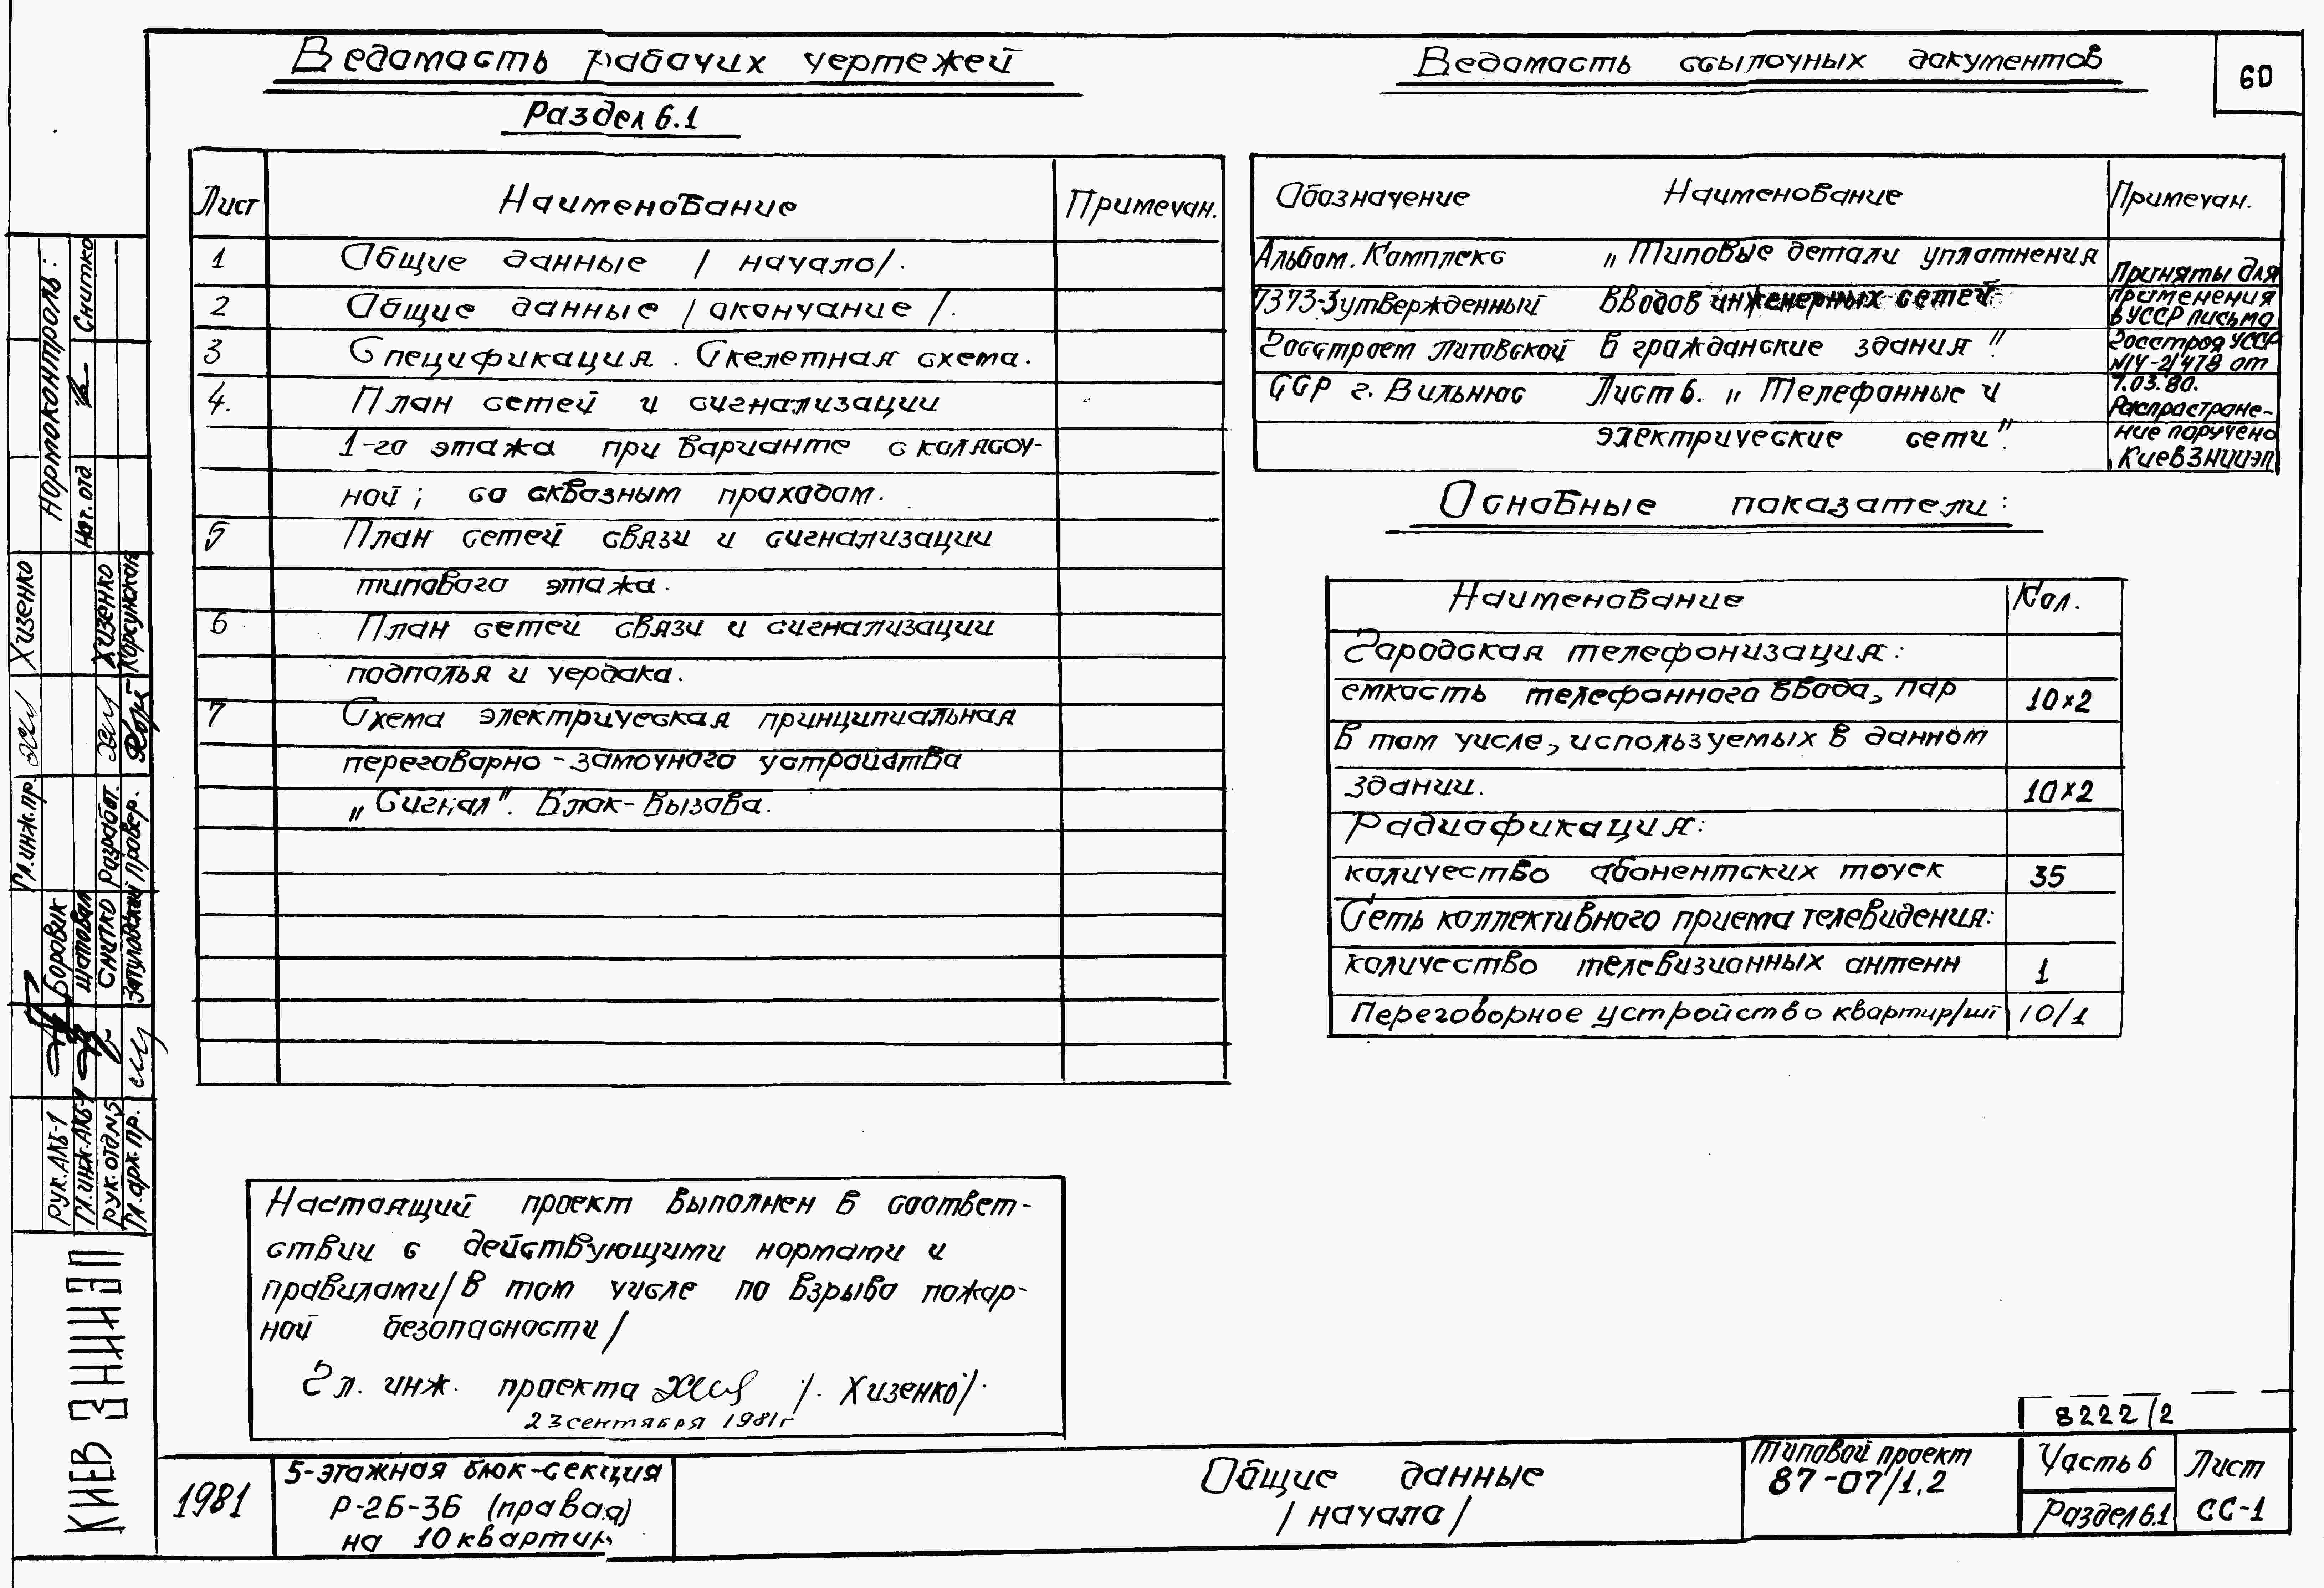 Ведомость рабочих чертежей
Раздел 6.1
Лист Наименование Примечан.
1 Общие данные / начало/.
2 Общие данные / окончание /.
3 Спецификация. Скелетная схема.
4. План сетей и сигнализации
1-го этажа при варианте с колясоч-
ной; со сквозным проходом.
5 План сетей связи и сигнализации
типового этажа.
6 План сетей связи и сигнализации
подполья и чердака.
7 Схема электрическая принципиальная
переговорно-замочного устройства
„Сигнал". Блок-вызова.
Ведомость ссылочных документов
60
Обозначение Наименование Примечан.
Альбом. Комплекс „Типовые детали уплотнения
7373-3 утвержденный вводов инженерных сетей
Госстроем Литовской в гражданские здания"
ССР г. Вильнюс Лист 6. „Телефонные и
электрические сети".
Приняты для
применения
в УССР письмо
Госстроя УССР
7.03.80.
Распростране-
ние поручено
КиевЗНИИЭП
Основные показатели:
Наименование Кол.
Городская телефонизация:
емкость телефонного ввода, пар 10×2
В том числе, используемых в данном
здании. 10×2
Радиофикация:
количество абонентских точек 35
Сеть коллективного приема телевидения:
количество телевизионных антенн 1
Переговорное устройство квартир/шт 10/1
Настоящий проект выполнен в соответ-
ствии с действующими нормами и
правилами/в том числе по взрыво пожар-
ной безопасности/
Гл. инж. проекта /. Хизенко/.
23 сентября 1981г
Нормоконтроль:
Нач. отд Снитко
Гл. инж. пр. Хизенко
Разработ. Хизенко
Провер. Корсунская
Рук. АКБ-1 Боровик
Гл. инж. АКБ-1 Шаповал
Рук. отд №5 Снитко
Гл. арх. пр.
КИЕВ ЗНИИЭП
1981
5-этажная блок-секция
Р-2Б-3Б (правая)
на 10 квартир
Общие данные
/ начало/
Типовой проект
87-07/1.2
8222/2
Часть 6
Раздел 6.1
Лист
СС-1